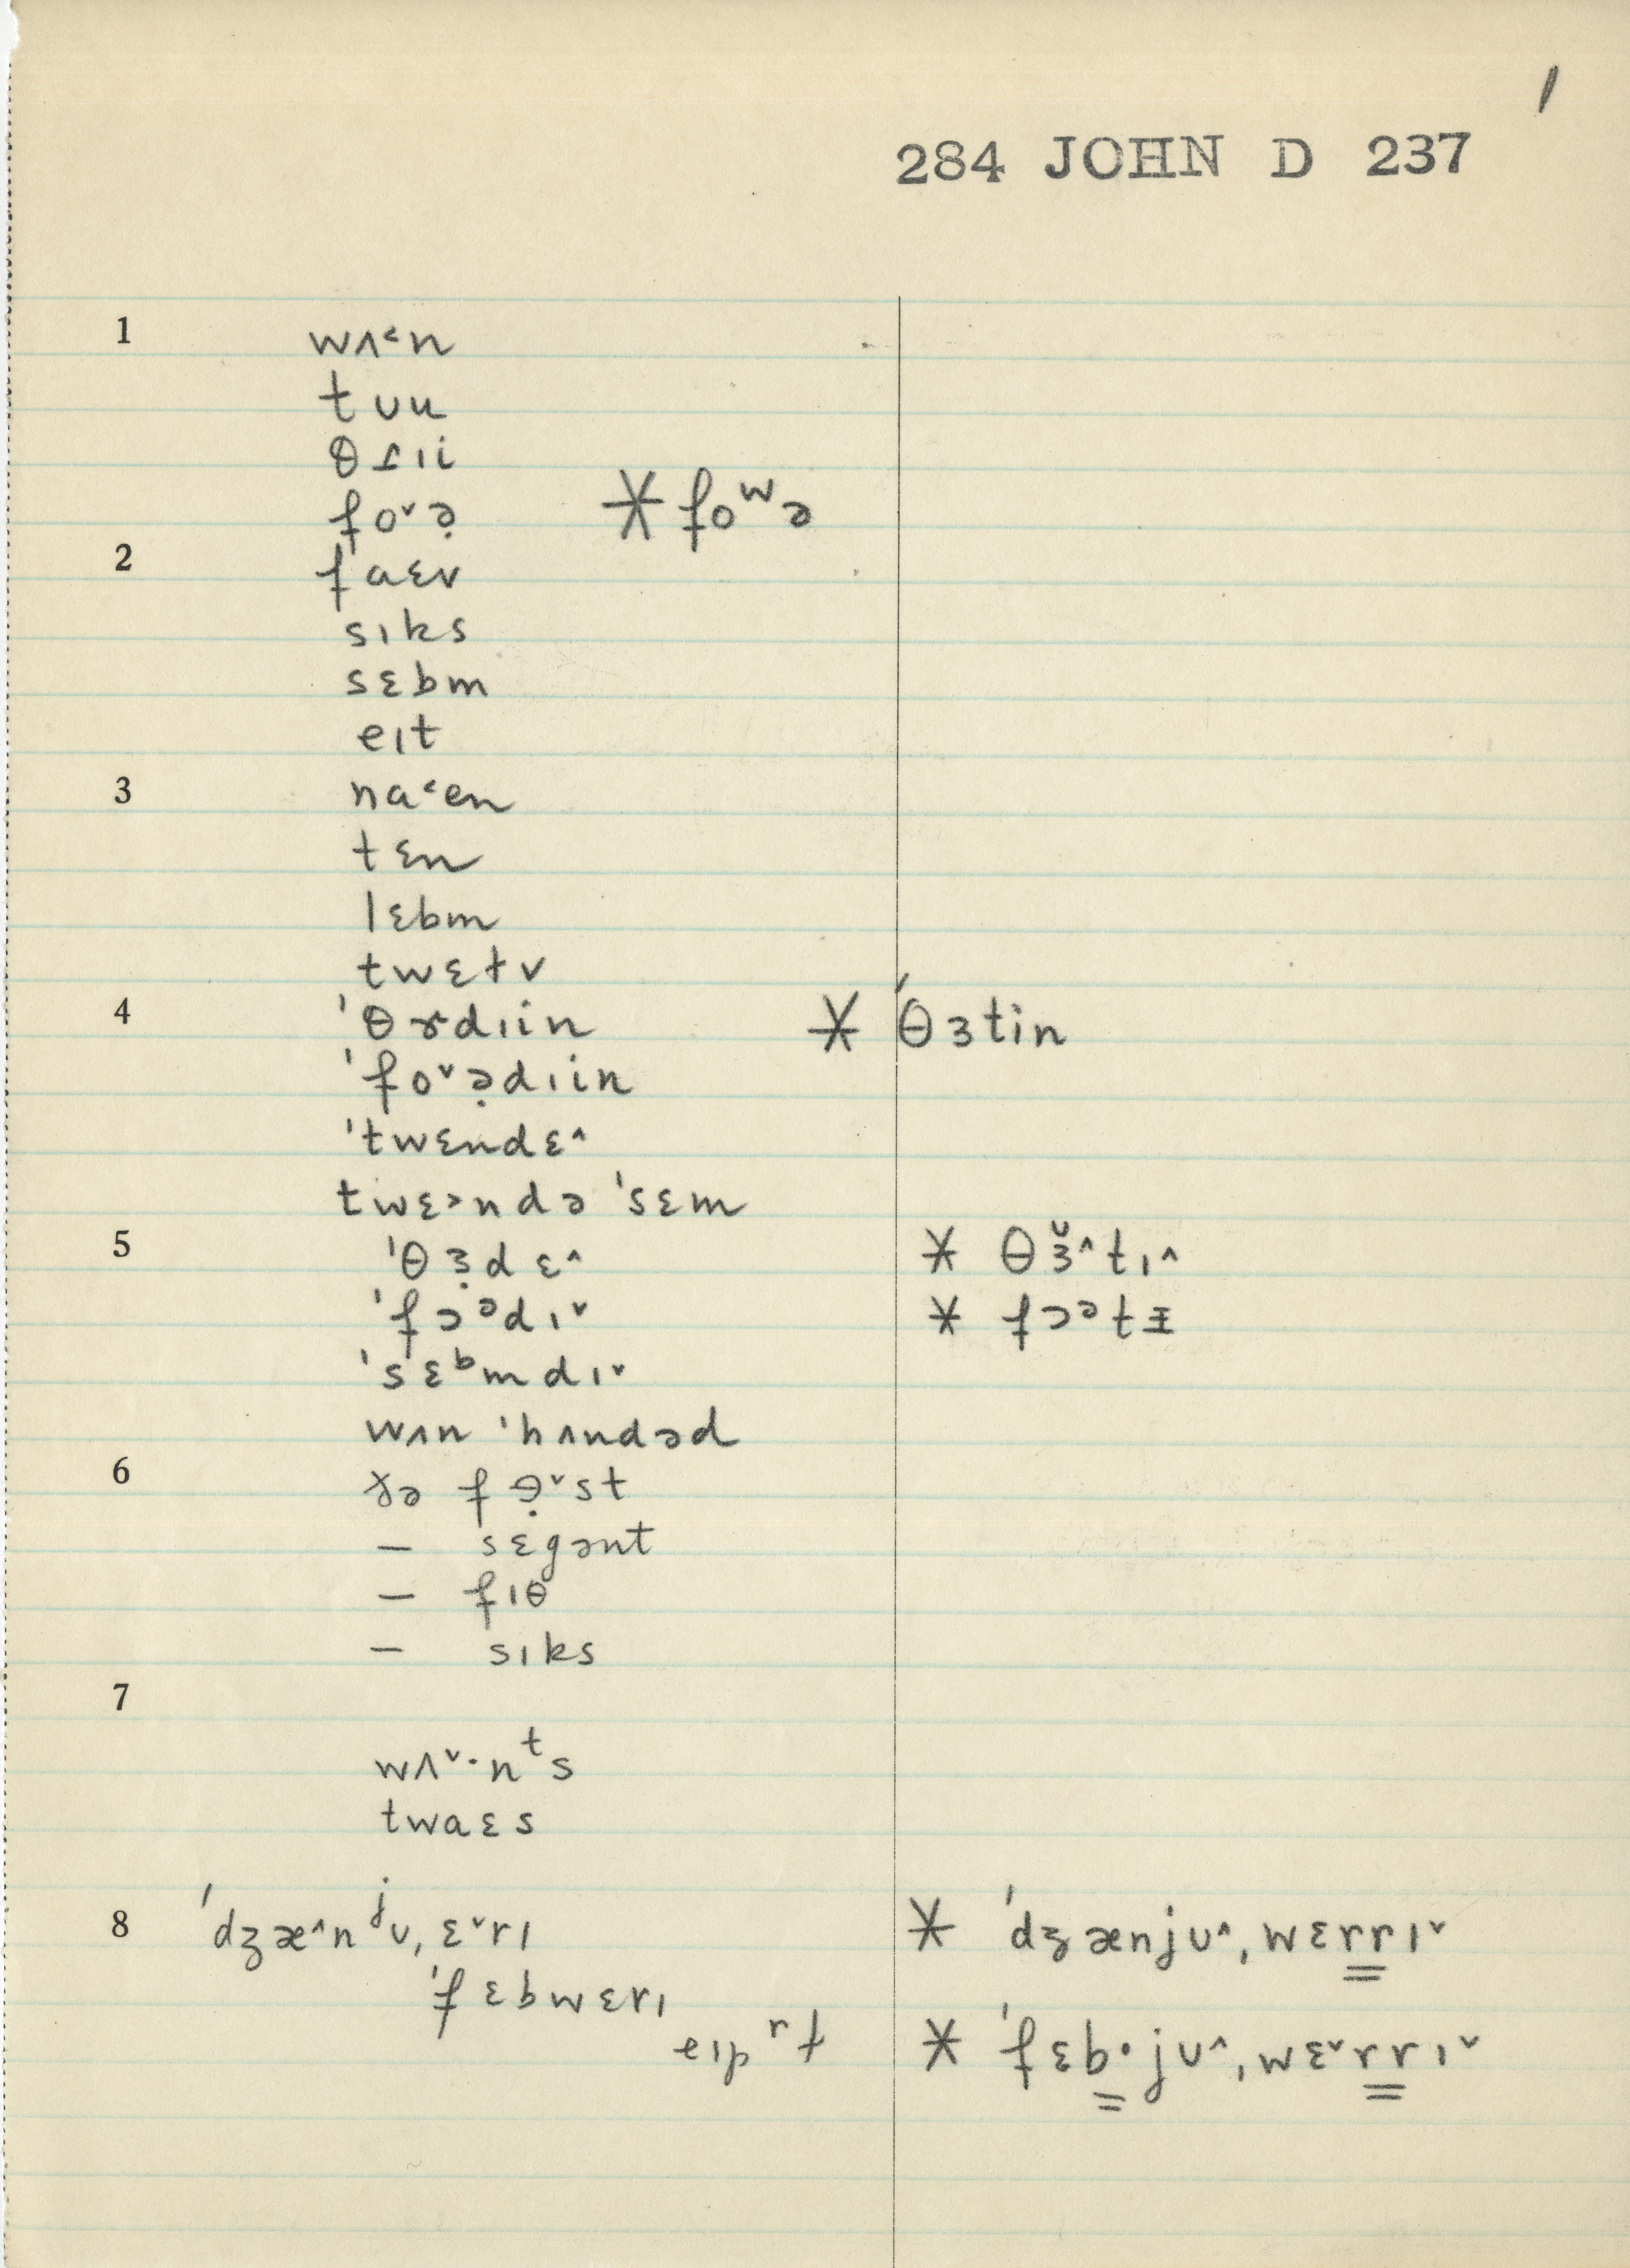 1
284 JOHN D 237
1 wʌ˂n
tʊu
θɹɪi
fo˅ə̣ * foʷə
2 faɛv
sɪks
sɛbm
eɪt
3 na˂en
tɛn
lɛbm
twɛtv
4 ˈθɤdɪin * ˈθɜtin
ˈfo˅ə̣dɪin
ˈtwɛndɛ˄
twɛ˃ndə ˈsɛm
5 ˈθɜ̣dɛ˄ * θɜ̆˄tɪ˄
ˈfɔᵊdɪ˅ * fɔᵊtᵻ
ˈsɛᵇmdɪ˅
wʌn ˈhʌndəd
6 ðə fɘ̣˅st
— sɛgənt
— fɪθ
— sɪks
7
wʌ˅·nᵗs
twaɛs
8 ˈdʒæ˄nʲʊˌɛ˅rɪ * ˈdʒænjʊ˄ˌwɛrrɪ˅
ˈfɛbwɛrɪ
* ˈfɛb·jʊ˄ˌwɛ˅rrɪ˅